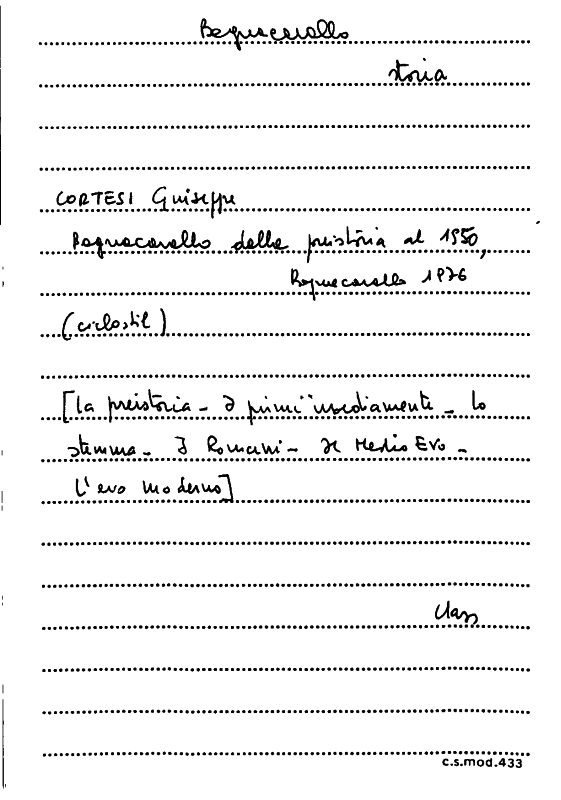 Bagnacavallo
storia
CORTESI Giuseppe
Bagnacavallo dalla preistoria al 1950,
Bagnacavallo 1976
(ciclostil)
[la preistoria - I primi insediamente - lo
stemma - I Romani - Il Medio Evo -
L'evo moderno]
Class
c.s.mod.433